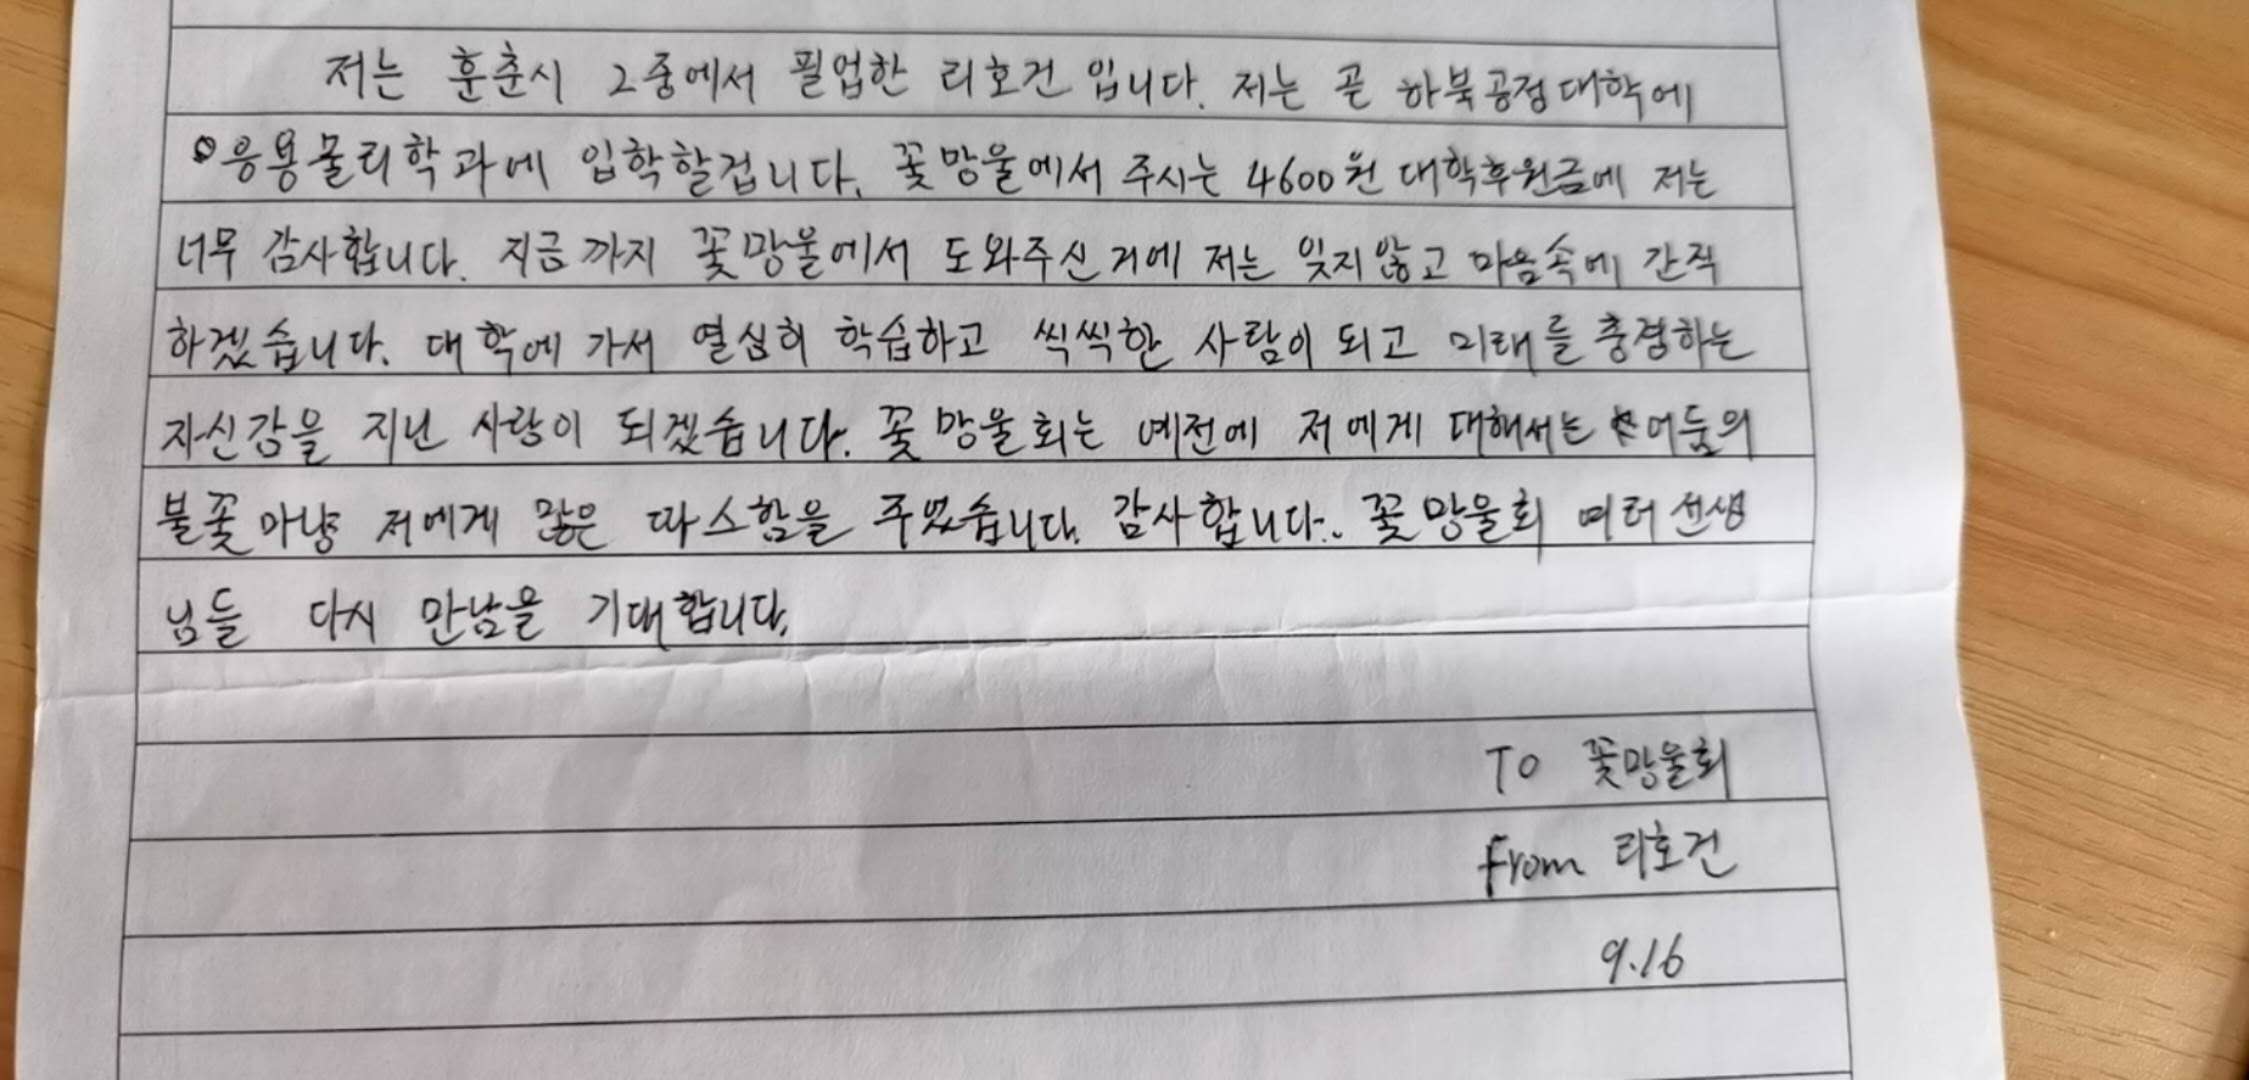 저는 훈춘시 2중에서 필업한 리호건입니다. 저는 곧 하북공정대학에
응용물리학과에 입학할겁니다. 꽃망울에서 주시는 4600원 대학후원금에 저는
너무 감사합니다. 지금까지 꽃망울에서 도와주신거에 저는 잊지않고 마음속에 간직
하겠습니다. 대학에 가서 열심히 학습하고 씩씩한 사람이 되고 미래를 충경하는
자신감을 지닌 사람이 되겠습니다. 꽃망울회는 예전에 저에게 대해서는 어둠의
불꽃마냥 저에게 많은 따스함을 주었습니다. 감사합니다. 꽃망울회 여러선생
님들 다시 만남을 기대합니다.
To 꽃망울회
From 리호건
9.16